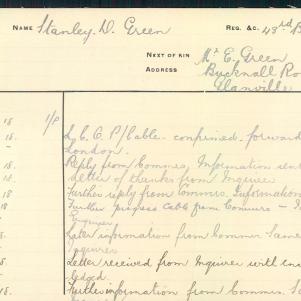 NAME Stanley. D. Green REG. &C. 43rd B
NEXT OF KIN Mr E. Green
ADDRESS Bucknall Ro
Glanville
18 1/P L. C. C. P/Cable. confirmed. forward
London.
18. Reply from Commrs, Information sent
Letter of thanks from Inquirer
18 Further reply from Commrs. Information
18 Further progress Cable from Commrs - I
Enquirer
18. Later information from Commrs Same
Inquirers
Letter received from Inquirer with
18. Further information from Commrs. S